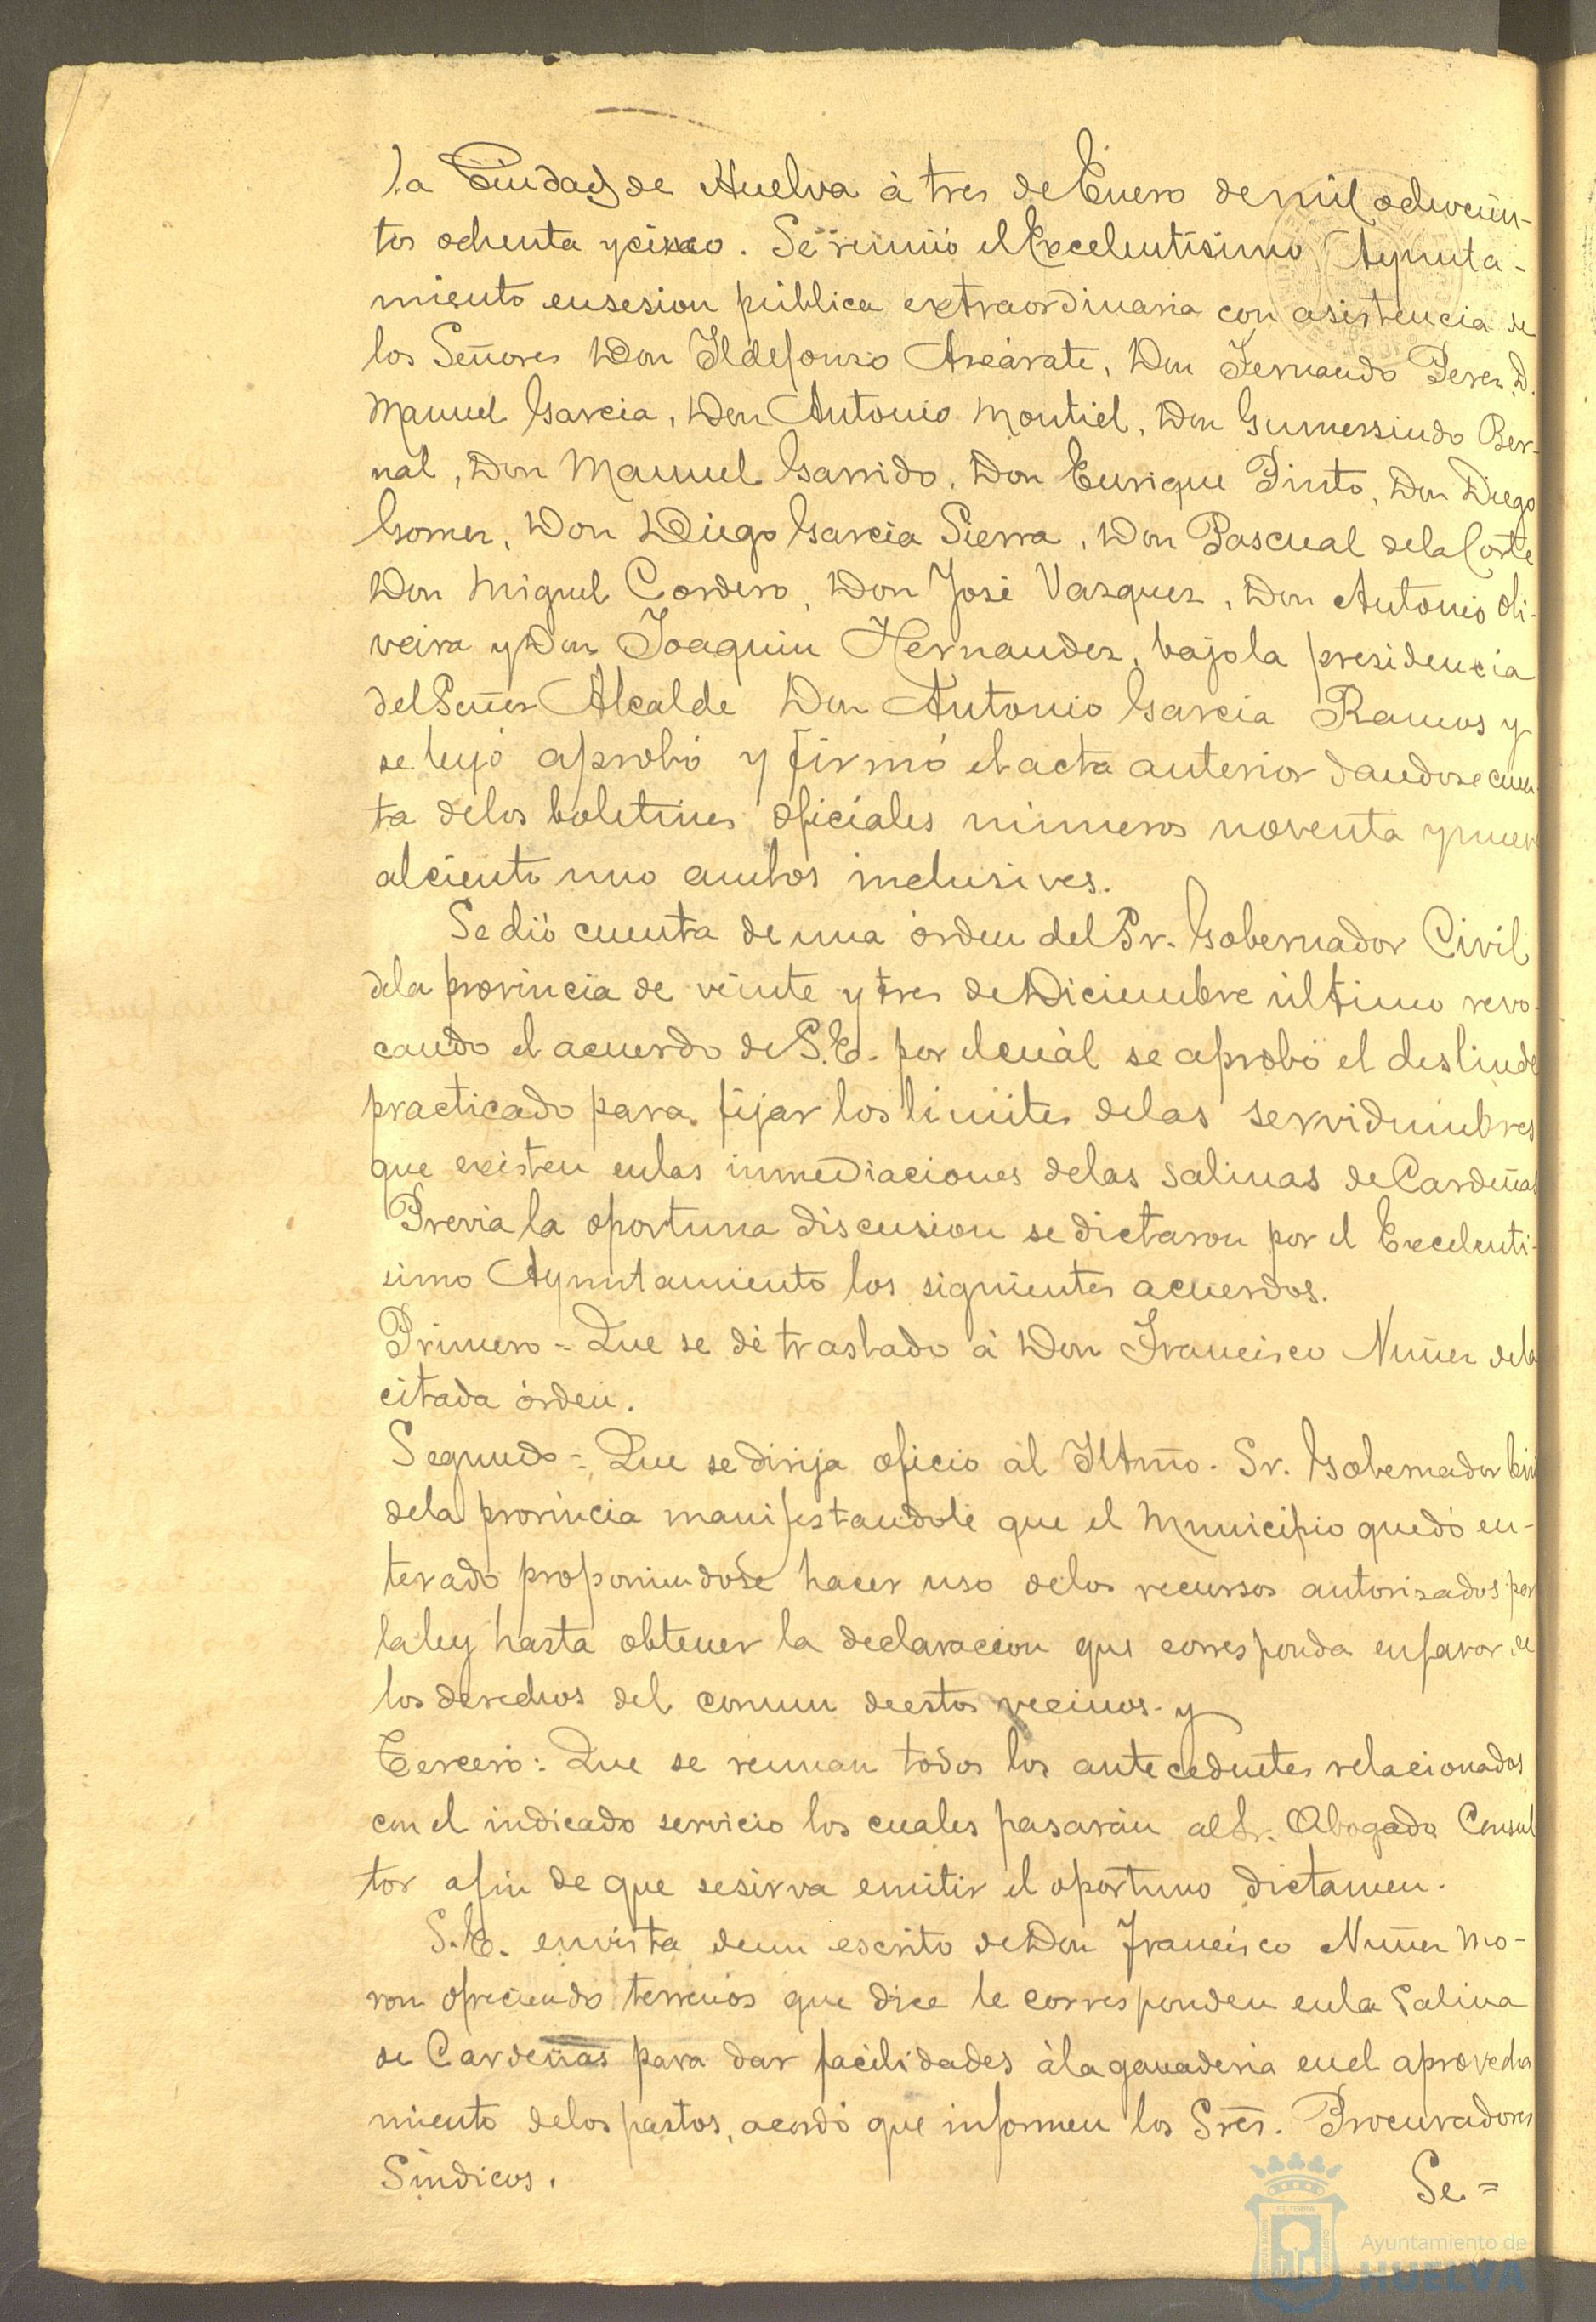 la Ciudad de Huelva à tres de Enero de mil ochocien-
tos ochenta y cinco. Se reunió el Excelentísimo Ayunta-
miento en sesion pública extraordinaria con asistencia de
los Señores Don Ildefonso Azcárate, Don Fernando Perez, D.
Manuel Garcia, Don Antonio Montiel, Don Gumersindo Ber-
nal, Don Manuel Garrido, Don Enrique Pinto, Don Diego
Gomez, Don Diego Garcia Sierra, Don Pascual de la Corte
Don Miguel Cordero, Don José Vazquez, Don Antonio Oli-
veira y Don Joaquin Hernandez, bajo la presidencia
del Señor Alcalde Don Antonio Garcia Ramos y
se leyó aprobó y firmó el acta anterior dandose cuen-
ta de los boletines oficiales números noventa y nueve
al ciento uno ambos inclusives.
Se dió cuenta de una órden del Sr. Gobernador Civil
de la provincia de veinte y tres de Diciembre último revo-
cando el acuerdo de S.E. por el cuál se aprobó el deslinde
practicado para fijar los limites de las servidumbres
que existen en las inmediaciones de las Salinas de Cardeñas
Previa la oportuna discusion se dictaron por el Excelenti-
simo Ayuntamiento los siguientes acuerdos.
Primero = Que se dé traslado à Don Francisco Nuñez de la
citada órden.
Segundo = Que se dirija oficio al Iltmo. Sr. Gobernador Civil
de la provincia manifestandole que el Municipio quedó en-
terado proponiendose hacer uso de los recursos autorizados por
la ley hasta obtener la declaracion que corresponda en favor de
los derechos del comun de estos vecinos. y
Tercero: Que se reunan todos los antecedentes relacionados
con el indicado servicio los cuales pasarán al Sr. Abogado Consul
tor afin de que se sirva emitir el oportuno dictamen.
S.E. en vista de un escrito de Don Francisco Nuñez Mo-
ron ofreciendo terrenos que dice le corresponden en la Salina
de Cardeñas para dar facilidades à la ganaderia en el aprovecha
miento de los pastos, acordó que informen los Sres. Procuradores
Síndicos.
Se =
Ayuntamiento de
HUELVA